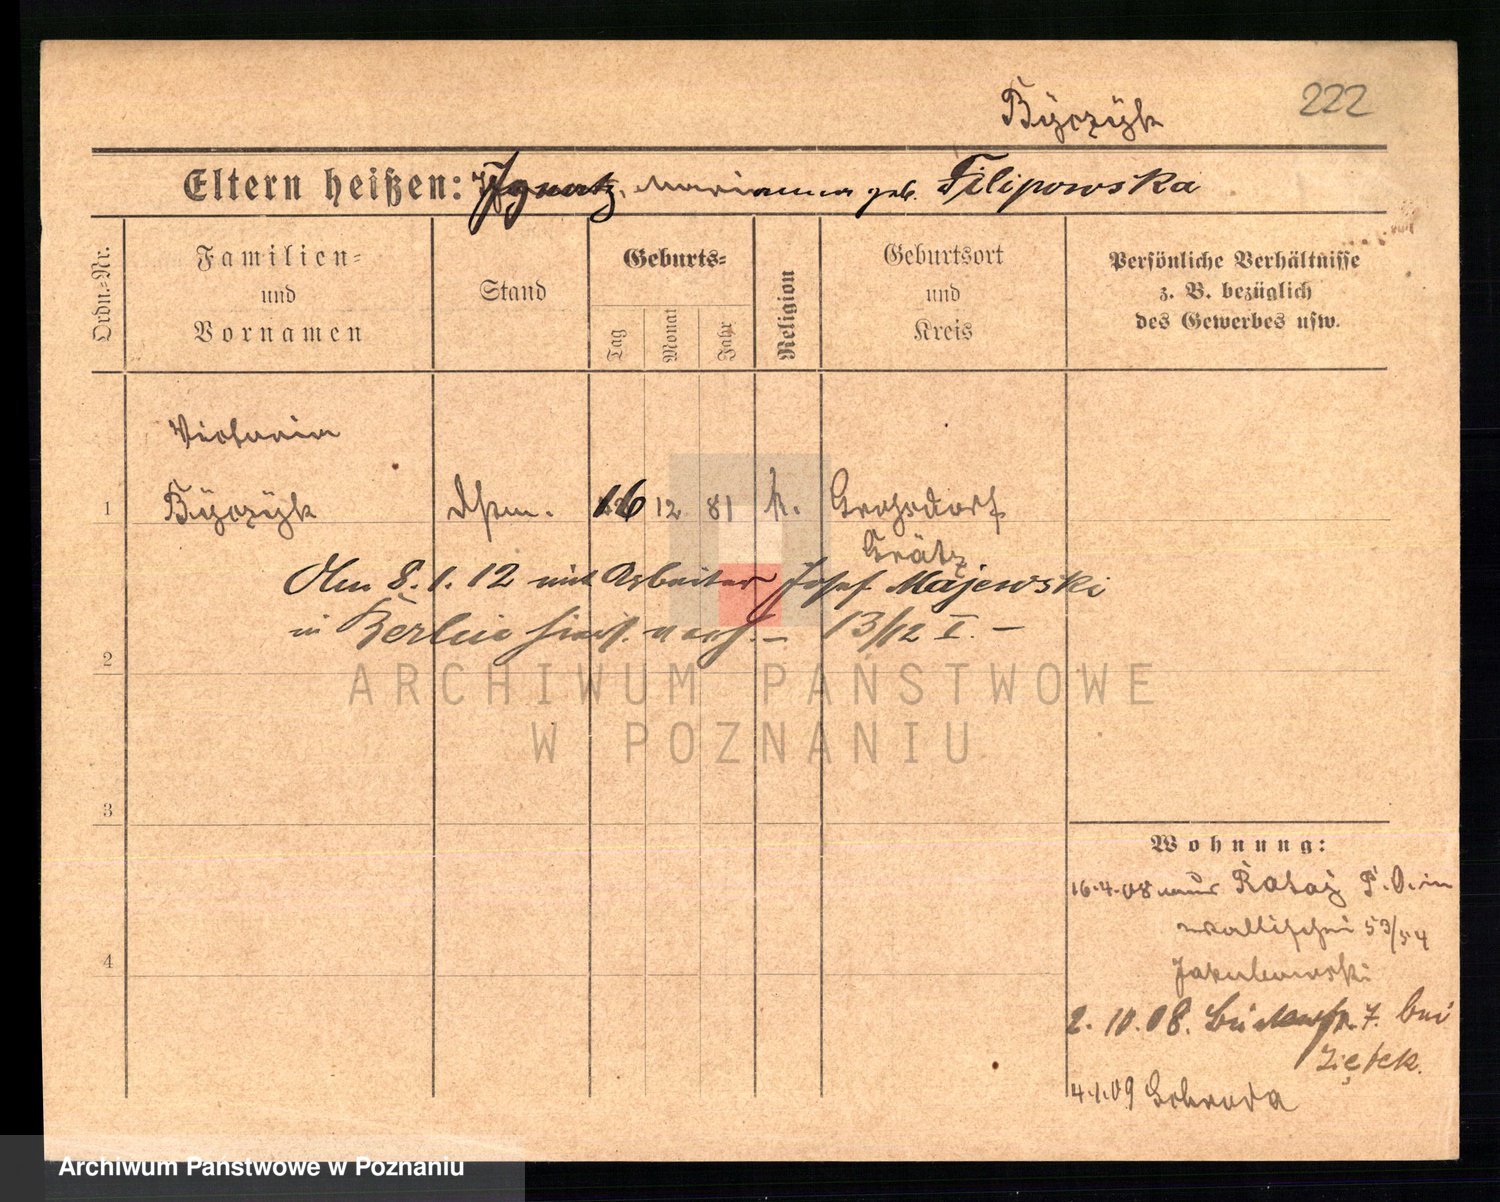 Byczyk 222
Eltern heißen: Ignatz, Marianna geb. Filipowska
Ordn.-Nr.
Familien-
und
Vornamen
Stand
Geburts-
Tag
Monat
Jahr
Religion
Geburtsort
und
Kreis
Persönliche Verhältnisse
z. B. bezüglich
des Gewerbes usw.
Victoria
1 Byczyk Dstm. 16 12 81 k. Grohsdorf
Grätz
Am 8.1.12 mit Arbeiter Josef Majewski
in Berlin 13/12 I. —
2
ARCHIWUM PAŃSTWOWE
W POZNANIU
3
Wohnung:
16.4.08 aus Rataj P. O. in
Wallischei 53/54
Jakubowski
4
2.10.08. 7. bei
Ziętek.
4.1.09 Schroda
Archiwum Państwowe w Poznaniu